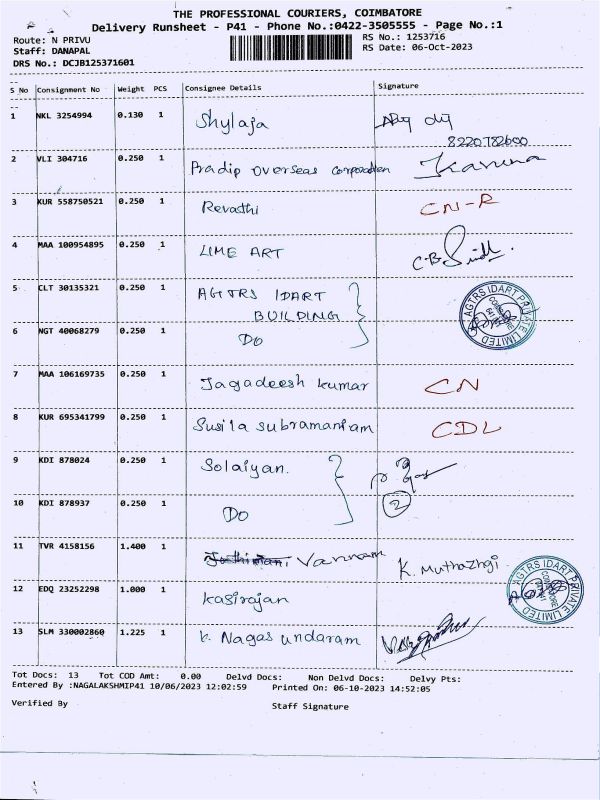 THE PROFESSIONAL COURIERS, COIMBATORE
Delivery Runsheet - P41 - Phone No.:0422-3505555 - Page No.:1
Route: N PRIVU RS No.: 1253716
Staff: DANAPAL RS Date: 06-Oct-2023
DRS No.: DCJB125371601
S No Consignment No Weight PCS Consignee Details Signature
1 NKL 3254994 0.130 1 Shylaja
8220782600
2 VLI 304716 0.250 1 Pradip overseas corporation Karuna
3 KUR 558750521 0.250 1 Revathi CN-R
4 MAA 100954895 0.250 1 LIME ART C.B.
5 CLT 30135321 0.250 1 AGTRS IDART
BUILDING
AGTRS IDART PRIVATE LIMITED
6 NGT 40068279 0.250 1 DO
7 MAA 106169735 0.250 1 Jagadeesh kumar CN
8 KUR 695341799 0.250 1 Susila subramaniam CDL
9 KDI 878024 0.250 1 Solaiyan.
10 KDI 878937 0.250 1 DO 2
11 TVR 4158156 1.400 1 Vannam K. Muthazhgi
12 EDQ 23252298 1.000 1 Kasirajan
AGTRS IDART PRIVATE LIMITED
13 SLM 330002860 1.225 1 K. Nagasundaram
Tot Docs: 13 Tot COD Amt: 0.00 Delvd Docs: Non Delvd Docs: Delvy Pts:
Entered By :NAGALAKSHMIP41 10/06/2023 12:02:59 Printed On: 06-10-2023 14:52:05
Verified By Staff Signature